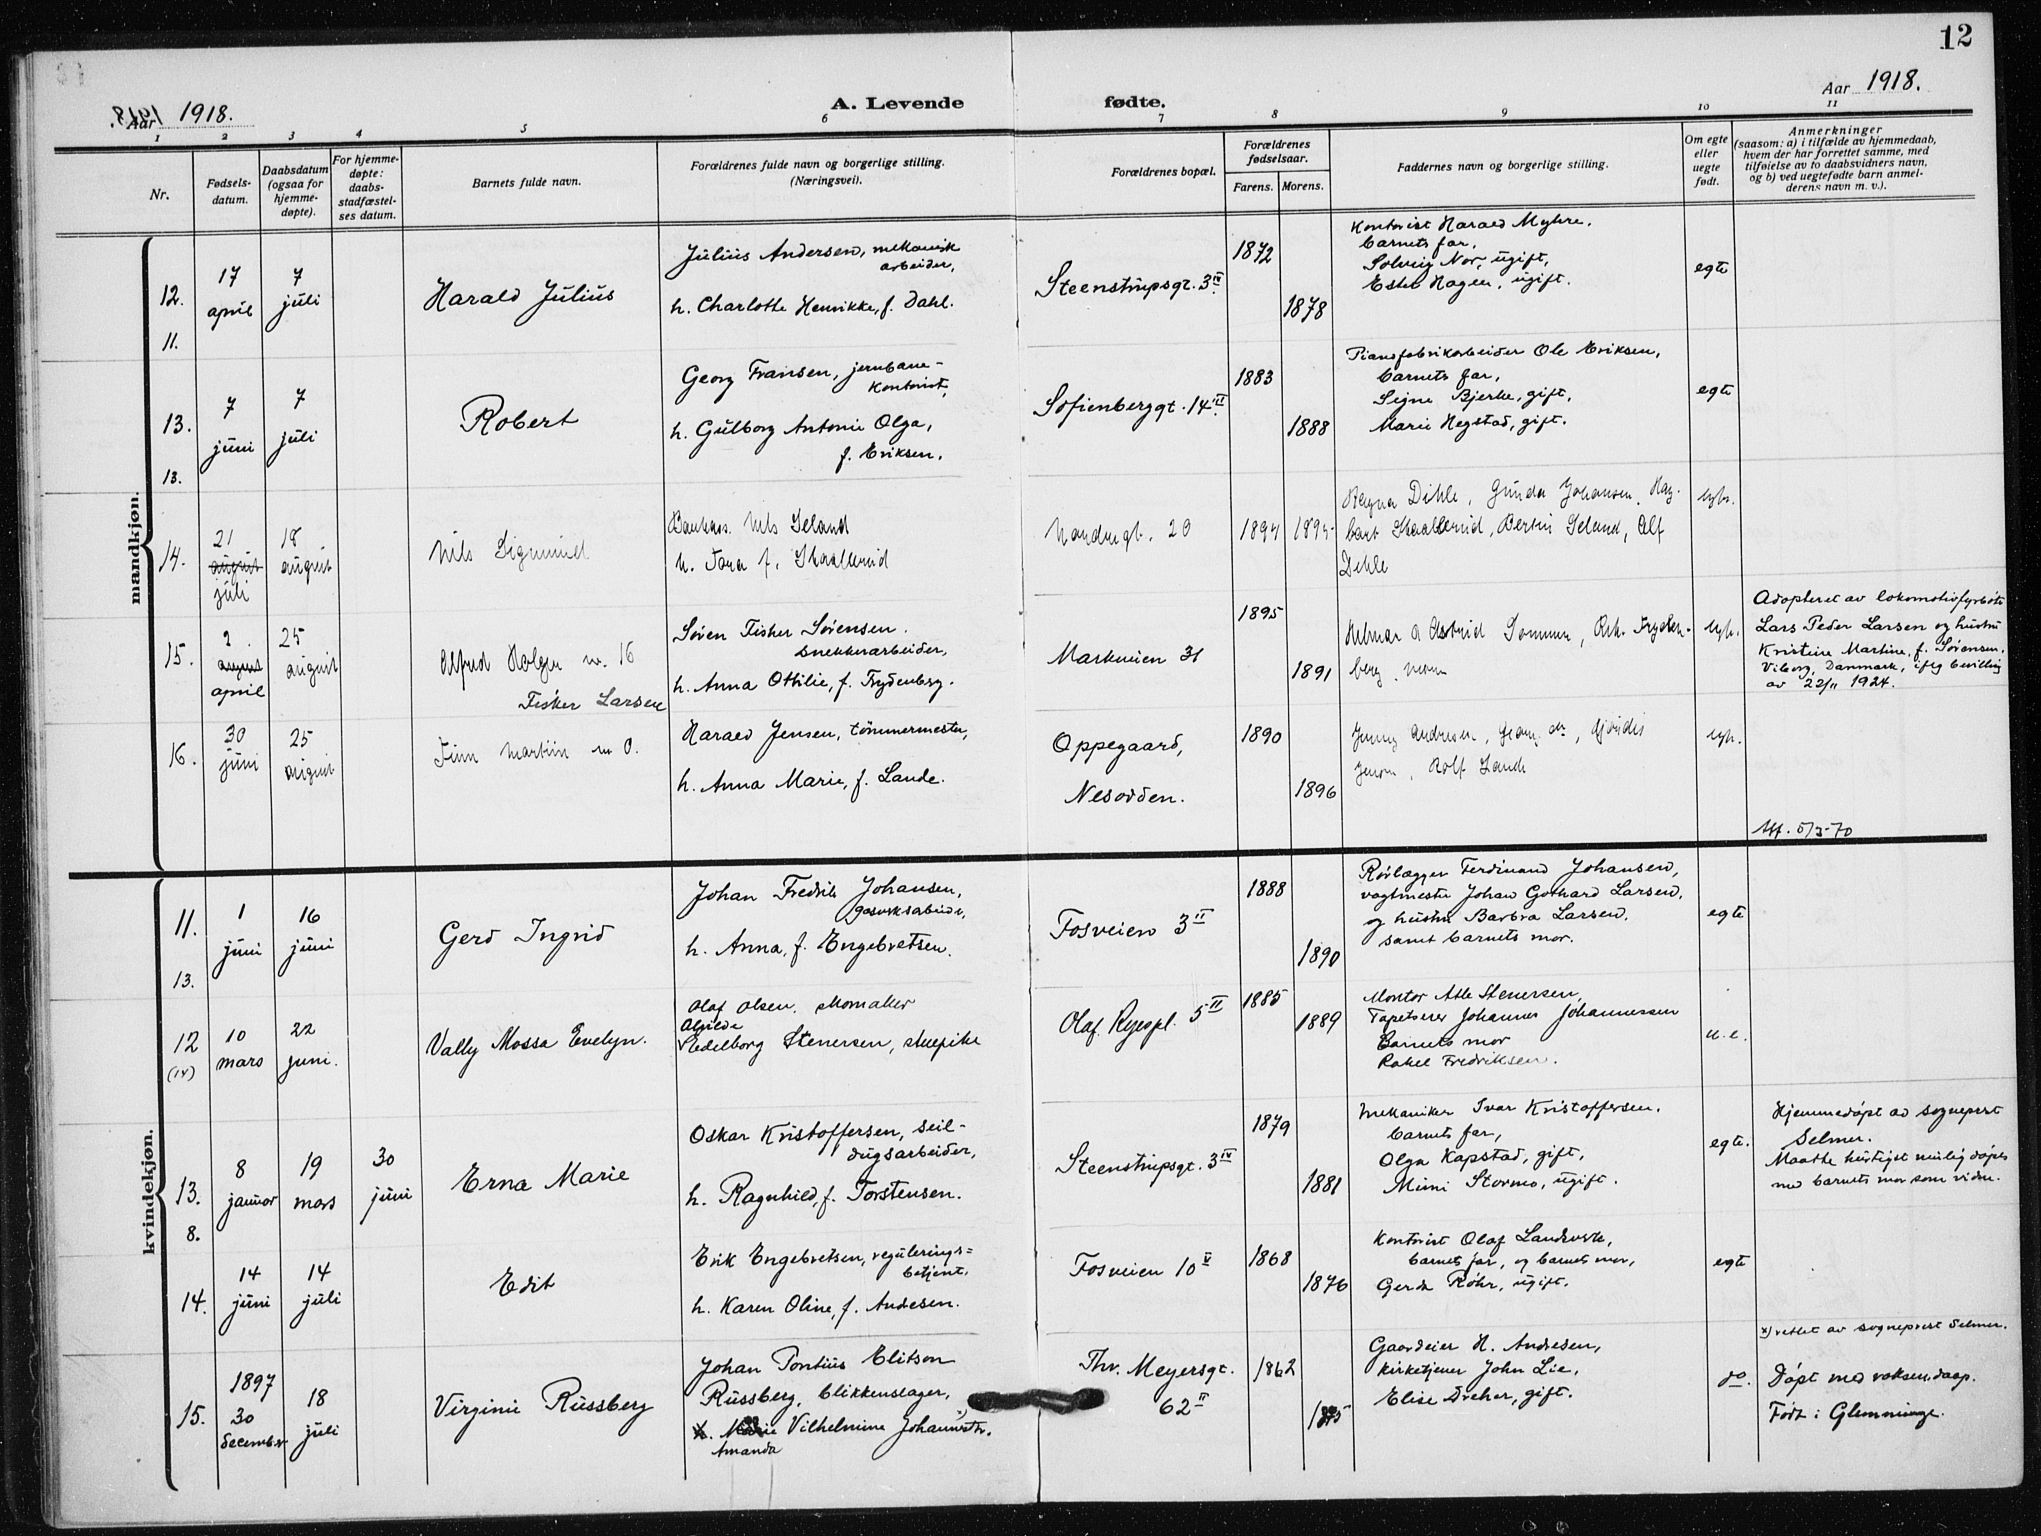 12
Aar 1918.
A. Levende fødte.
Aar 1918.
1 2 3 4 5 6 7 8 9 10 11
Nr.
Fødsels-
datum.
Daabsdatum
(ogsaa for
hjemme-
døpte).
For hjemme-
døpte:
daabs-
stadfæstel-
ses datum.
Barnets fulde navn.
Forældrenes fulde navn og borgerlige stilling.
(Næringsvei).
Forældrenes bopæl.
Forældrenes
fødselsaar.
Farens. Morens.
Faddernes navn og borgerlige stilling.
Om egte
eller
uegte
født.
Anmerkninger
(saasom: a) i tilfælde av hjemmedaab,
hvem der har forrettet samme, med
tilføielse av to daabsvidners navn,
og b) ved uegtefødte barn anmel-
derens navn m. v.).
mandkjøn.
12.
11.
17
april
7
juli
Harald Julius
Julius Andersen, mekanisk
arbeider,
h. Charlotte Henrikke, f. Dahl.
Steenstrupsgt. 3 IV
1872
1878
Kontorist Harald Myhre,
barnets far,
Solveig Nor, ugift,
Ester Hagen, ugift.
egte
13.
13.
7
juni
7
juli
Robert
Georg Fransen, jernbane-
kontorist,
h. Gulborg Antonie Olga,
f. Eriksen.
Sofienberggt. 14 III
1883
1888
Pianofabrikarbeider Ole Eriksen,
barnets far,
Signe Bjerke, gift,
Marie Hegstad, gift.
egte
14.
21
august
juli
18
august
Nils Sigmund
Nils Iseland
h. Tora f. Skaallerud
20
1894
Ragna Dihle, Gunda Johansen,
Skaallerud, Iseland, Alf
Dihle
15.
2
august
april
25
august
Alfred Holger nr. 16
Fisker Larsen
Søren Fisker Sørensen.
snekkerarbeider,
h. Anna Othilie, f. Frydenberg.
Markveien 31
1895
1891
Adopteret av lokomotivfyrbøter
Lars Peder Larsen og hustru
Kristine Martine, f. Sørensen,
Viborg, Danmark, iflg bevilling
av 22/11 1924.
16.
30
juni
25
august
Finn Martin nr 0.
Harald Jensen, tømmermester,
h. Anna Marie, f. Lande.
Oppegaard,
Nesodden.
1890
1896
Jenny Andresen,
Rolf Lande
Att. 5/3-70
kvindekjøn.
11.
13.
1
juni
16
juni
Gerd Ingrid
Johan Fredrik Johansen,
gasverksarbeider,
h. Anna, f. Engebretsen.
Fosveien 3 II
1888
1890
Rørlægger Ferdinand Johansen,
vagtmester Johan Gothard Larsen,
og hustru Barbra Larsen,
samt barnets mor.
egte
12
(IV)
10
mars
22
juni.
Vally Mossa Evelyn.
Olaf Olsen, skomaker
Alvilde
Hedelborg Stenersen, stuepike
Olaf Ryespl. 5 II
1885
1889
Montør Atle Stenersen,
Tapetserer Johannes Johannessen
Barnets mor
Rakel Fredriksen.
u. e.
13.
8.
8
januar
19
mars
30
juni
Erna Marie
Oskar Kristoffersen, seil-
dugsarbeider,
h. Ragnhild, f. Torstensen.
Steenstrupsgt. 3 IV
1879
1881
Mekaniker Ivar Kristoffersen,
barnets far,
Olga Kapstad, gift,
Mimi Stormo, ugift.
egte.
Hjemmedøpt av sogneprest
Selmer.
Maatte hurtigst mulig døpes
med barnets mor som vidne.
14.
14
juni
14
juli
Edit
Erik Engebretsen, regulerings-
betjent,
h. Karen Oline, f. Andesen.
Fosveien 10 V
1868
1876
Kontorist Olaf Landsverk,
barnets far, og barnets mor,
Gerda Røhr, ugift.
egte
15.
1897
30
december
18
juli
Virginie Russberg
Johan Pontius Elitson
Russberg, blikkenslager,
h. Marie Vilhelmine
Amanda
Thv. Meyersgt.
62 II
1862
Gaardeier H. Andresen,
kirketjener John Lie,
Elise Dreher, gift.
do.
x) rettet av sogneprest Selmer.
Døpt med voksendaap.
Født i Glemminge.